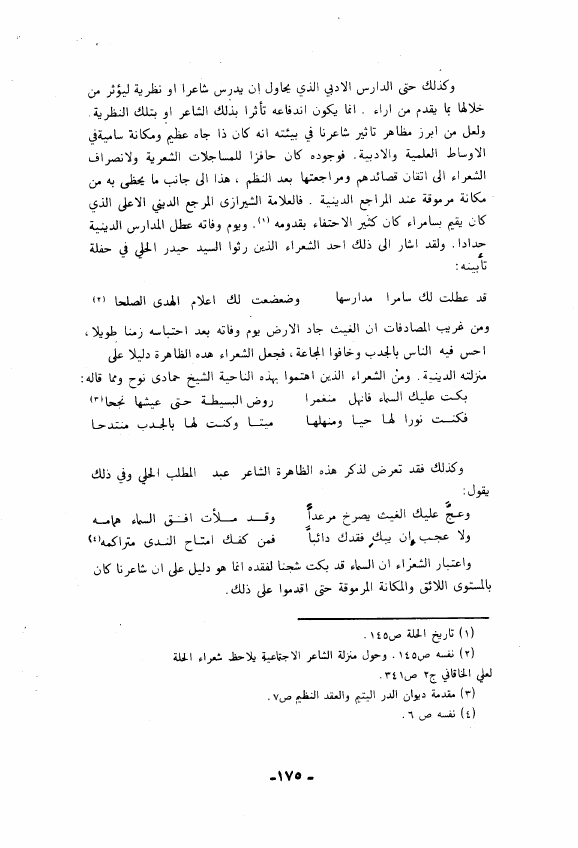 وكذلك حتى الدارس الادبي الذي يحاول إن يدرس شاعرا او نظرية ليؤثر من
خلالها بما يقدم من اراء . انما يكون اندفاعه تأثرا بذلك الشاعر او بتلك النظرية.
ولعل من ابرز مظاهر تاثير شاعرنا في بيئته انه كان ذا جاه عظيم ومكانة سامية في
الاوساط العلمية والادبية. فوجوده كان حافزا للمساجلات الشعرية ولانصراف
الشعراء الى اتقان قصائدهم ومراجعتها بعد النظم ، هذا الى جانب ما يحظى به من
مكانة مرموقة عند المراجع الدينية . فالعلامة الشيرازى المرجع الديني الاعلى الذي
كان يقيم بسامراء كان كثير الاحتفاء بقدومه (١). ويوم وفاته عطل المدارس الدينية
حدادا. ولقد اشار الى ذلك احد الشعراء الذين رثوا السيد حيدر الحلي في حفلة
تأبينه:
قد عطلت لك سامرا مدارسها وضعضعت لك اعلام الهدى الصلحا (٢)
ومن غريب المصادفات ان الغيث جاد الارض يوم وفاته بعد احتباسه زمنا طويلا،
احس فيه الناس بالجدب وخافوا المجاعة، فجعل الشعراء هذه الظاهرة دليلا على
منزلته الدينية. ومن الشعراء الذين اهتموا بهذه الناحية الشيخ حمادى نوح ومما قاله:
بكت عليك السماء فانهل منغمرا روض البسيطة حتى عيشها نجحا (٣)
فكنت نورا لها حيا ومنهلها ميتا وكنت لها بالجدب منتدحا
وكذلك فقد تعرض لذكر هذه الظاهرة الشاعر عبد المطلب الحلي وفي ذلك
يقول:
وعجَّ عليك الغيث يصرخ مرعداً وقد ملأت افق السماء همامه
ولا عجب إن يبكِ فقدك دائباً فمن كفك امتاح الندى متراكمه (٤)
واعتبار الشعراء ان السماء قد بكت شجنا لفقده انما هو دليل على ان شاعرنا كان
بالمستوى اللائق والمكانة المرموقة حتى اقدموا على ذلك.
(١) تاريخ الحلة ص١٤٥.
(٢) نفسه ص١٤٥. وحول منزلة الشاعر الاجتماعية يلاحظ شعراء الحلة
لعلي الخاقاني ج٢ ص٣٤١.
(٣) مقدمة ديوان الدر اليتيم والعقد النظيم ص٧.
(٤) نفسه ص ٦.
- ١٧٥ -